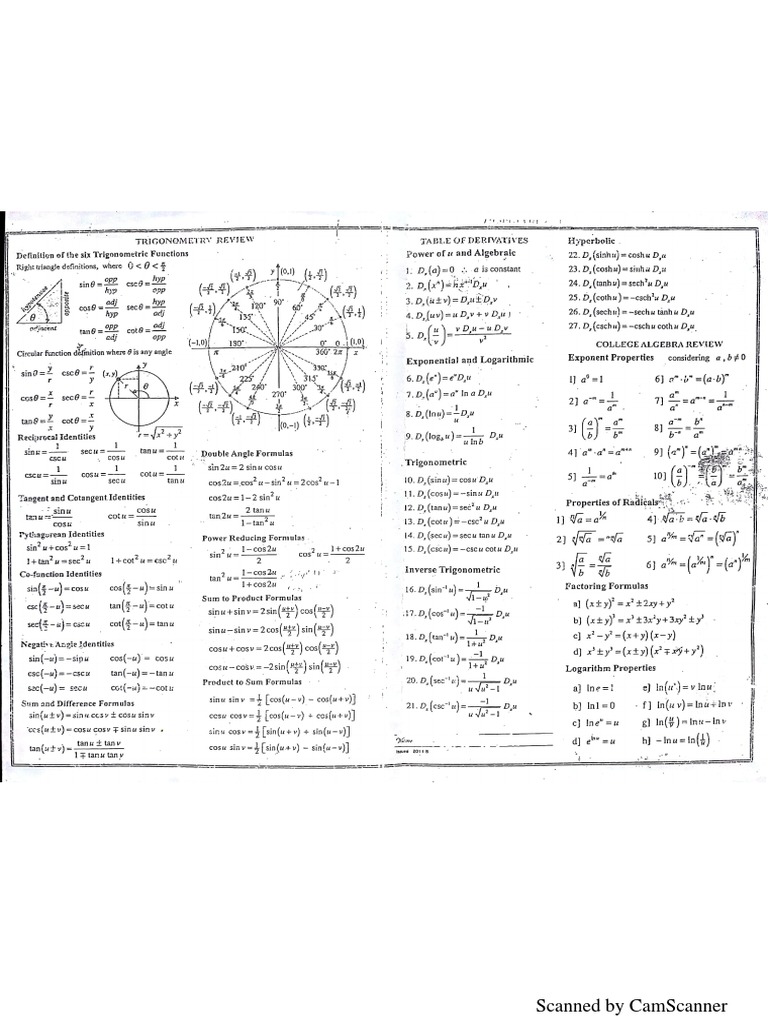 TRIGONOMETRY REVIEW
Definition of the six Trigonometric Functions
Right triangle definitions, where 0 < θ < π/2
hypotenuse
opposite
adjacent
θ
sin θ = opp/hyp csc θ = hyp/opp
cos θ = adj/hyp sec θ = hyp/adj
tan θ = opp/adj cot θ = adj/opp
Circular function definition where θ is any angle
sin θ = y/r csc θ = r/y
cos θ = x/r sec θ = r/x
tan θ = y/x cot θ = x/y
(x, y)
r = √x² + y²
Reciprocal Identities
sin u = 1/csc u sec u = 1/cos u tan u = 1/cot u
csc u = 1/sin u cos u = 1/sec u cot u = 1/tan u
Tangent and Cotangent Identities
tan u = sin u/cos u cot u = cos u/sin u
Pythagorean Identities
sin² u + cos² u = 1
1 + tan² u = sec² u 1 + cot² u = csc² u
Co-function Identities
sin(π/2 − u) = cos u cos(π/2 − u) = sin u
csc(π/2 − u) = sec u tan(π/2 − u) = cot u
sec(π/2 − u) = csc u cot(π/2 − u) = tan u
Negative Angle Identities
sin(−u) = −sin u cos(−u) = cos u
csc(−u) = −csc u tan(−u) = −tan u
sec(−u) = sec u cot(−u) = −cot u
Sum and Difference Formulas
sin(u ± v) = sin u cos v ± cos u sin v
cos(u ± v) = cos u cos v ∓ sin u sin v
tan(u ± v) = tan u ± tan v/1 ∓ tan u tan v
y
(0,1)
90°
120°
135°
150°
45°
30°
(−1,0) π 180°
0° 0
360° 2π (1,0) x
210°
330°
315°
240°
300°
270°
(0,−1)
Double Angle Formulas
sin 2u = 2 sin u cos u
cos 2u = cos² u − sin² u = 2 cos² u − 1
cos 2u = 1 − 2 sin² u
tan 2u = 2 tan u/1 − tan² u
Power Reducing Formulas
sin² u = 1 − cos 2u/2 cos² u = 1 + cos 2u/2
tan² u = 1 − cos 2u/1 + cos 2u
Sum to Product Formulas
sin u + sin v = 2 sin(u+v/2) cos(u−v/2)
sin u − sin v = 2 cos(u+v/2) sin(u−v/2)
cos u + cos v = 2 cos(u+v/2) cos(u−v/2)
cos u − cos v = −2 sin(u+v/2) sin(u−v/2)
Product to Sum Formulas
sin u sin v = ½ [cos(u − v) − cos(u + v)]
cos u cos v = ½ [cos(u − v) + cos(u + v)]
sin u cos v = ½ [sin(u + v) + sin(u − v)]
cos u sin v = ½ [sin(u + v) − sin(u − v)]
TABLE OF DERIVATIVES
Power of u and Algebraic
1. Dₓ(a) = 0 ∴ a is constant
2. Dₓ(xⁿ) = n xⁿ⁻¹ Dₓu
3. Dₓ(u ± v) = Dₓu ± Dₓv
4. Dₓ(uv) = u Dₓv + v Dₓu
5. Dₓ(u/v) = v Dₓu − u Dₓv/v²
Exponential and Logarithmic
6. Dₓ(eᵘ) = eᵘ Dₓu
7. Dₓ(aᵘ) = aᵘ ln a Dₓu
8. Dₓ(ln u) = 1/u Dₓu
9. Dₓ(log_b u) = 1/u ln b Dₓu
Trigonometric
10. Dₓ(sin u) = cos u Dₓu
11. Dₓ(cos u) = −sin u Dₓu
12. Dₓ(tan u) = sec² u Dₓu
13. Dₓ(cot u) = −csc² u Dₓu
14. Dₓ(sec u) = sec u tan u Dₓu
15. Dₓ(csc u) = −csc u cot u Dₓu
Inverse Trigonometric
16. Dₓ(sin⁻¹ u) = 1/√1 − u² Dₓu
17. Dₓ(cos⁻¹ u) = −1/√1 − u² Dₓu
18. Dₓ(tan⁻¹ u) = 1/1 + u² Dₓu
19. Dₓ(cot⁻¹ u) = −1/1 + u² Dₓu
20. Dₓ(sec⁻¹ u) = 1/u √u² − 1 Dₓu
21. Dₓ(csc⁻¹ u) = −1/u √u² − 1 Dₓu
Hyperbolic
22. Dₓ(sinh u) = cosh u Dₓu
23. Dₓ(cosh u) = sinh u Dₓu
24. Dₓ(tanh u) = sech² u Dₓu
25. Dₓ(coth u) = −csch² u Dₓu
26. Dₓ(sech u) = −sech u tanh u Dₓu
27. Dₓ(csch u) = −csch u coth u Dₓu
COLLEGE ALGEBRA REVIEW
Exponent Properties considering a, b ≠ 0
1] a⁰ = 1 6] aᵐ · bᵐ = (a · b)ᵐ
2] a⁻ᵐ = 1/aᵐ 7] aᵐ/aⁿ = aᵐ⁻ⁿ = 1/aⁿ⁻ᵐ
3] (a/b)ᵐ = aᵐ/bᵐ 8] a⁻ᵐ/b⁻ⁿ = bⁿ/aᵐ
4] aᵐ · aⁿ = aᵐ⁺ⁿ 9] (aᵐ)ⁿ = (aⁿ)ᵐ = aᵐⁿ
5] 1/a⁻ᵐ = aᵐ 10] (a/b)⁻ᵐ = (b/a)ᵐ = bᵐ/aᵐ
Properties of Radicals
1] ⁿ√a = a^1/n 4] ⁿ√a · b = ⁿ√a · ⁿ√b
2] ᵐ√ⁿ√a = ᵐⁿ√a 5] a^n/m = ᵐ√aⁿ = (ᵐ√a)ⁿ
3] ⁿ√a/b = ⁿ√a/ⁿ√b 6] a^n/m = (a^1/m)ⁿ = (aⁿ)^1/m
Factoring Formulas
a] (x ± y)² = x² ± 2xy + y²
b] (x ± y)³ = x³ ± 3x²y + 3xy² ± y³
c] x² − y² = (x + y)(x − y)
d] x³ ± y³ = (x ± y)(x² ∓ xy + y²)
Logarithm Properties
a] ln e = 1 e] ln(uᵛ) = v ln u
b] ln 1 = 0 f] ln(u v) = ln u + ln v
c] ln eᵘ = u g] ln(u/v) = ln u − ln v
d] e^ln u = u h] − ln u = ln(1/u)
Scanned by CamScanner